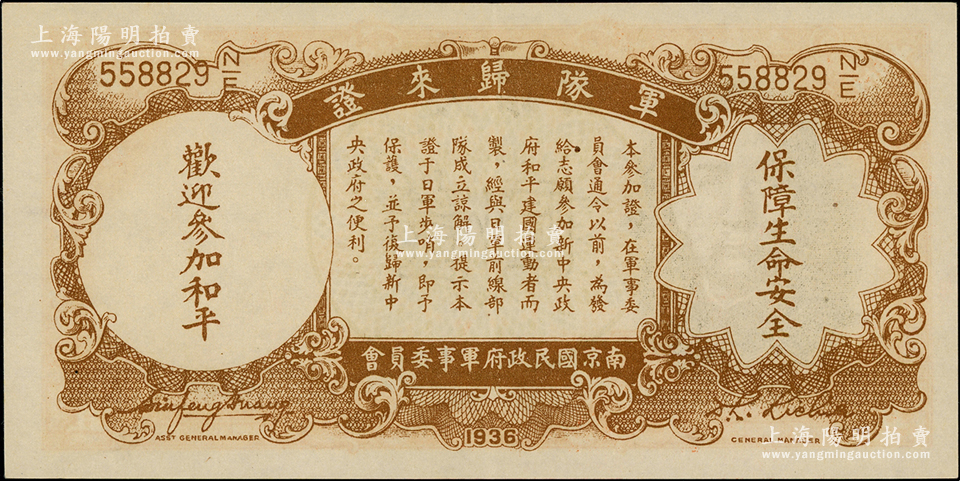 上海陽明拍賣
www.yangmingauction.com
上海陽明拍賣
www.yangmingauction.com
558829 N/E
558829 N/E
證來歸隊軍
保障生命安全
本参加證，在軍事委
員會通令以前，為發
給志願参加新中央政
府和平建國運動者而
製，經與日軍前線部
隊成立諒解，提示本
證于日軍步哨，即予
保護，並予後歸新中
央政府之便利。
歡迎参加和平
上海陽明拍賣
www.yangmingauction.com
會員委事軍府政民國京南
ASST GENERAL MANAGER
1936
GENERAL MANAGER
上海陽明拍賣
www.yangmingauction.com